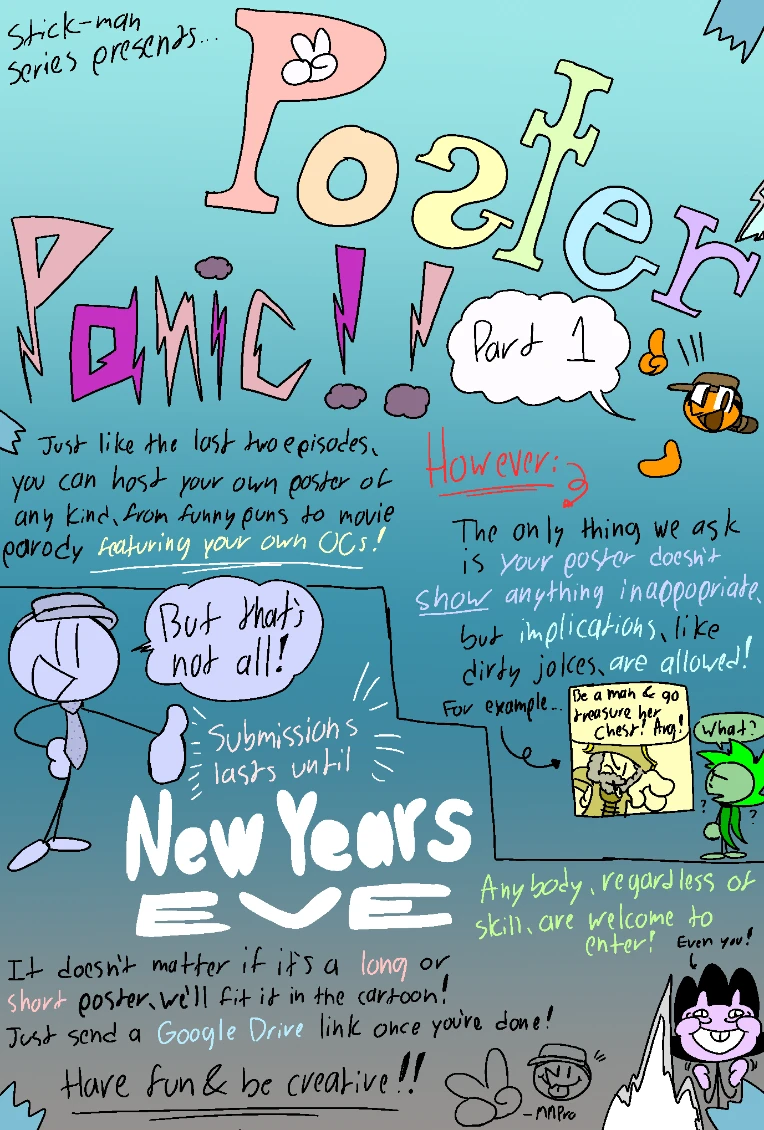 Stick-man
series presents...
Poster
Panic!!
Part 1
Just like the last two episodes,
you can host your own poster of
any kind, from funny puns to movie
parody featuring your own OCs!
However:
The only thing we ask
is your poster doesn't
show anything inappopriate,
but implications, like
dirty jokes, are allowed!
For example...
Be a man & go
treasure her
chest! Arg!
What?
?
?
But that's
not all!
Submissions
lasts until
New Years
EVE
Anybody, regardless of
skill, are welcome to
enter!
Even you!
It doesn't matter if it's a long or
short poster, we'll fit it in the cartoon!
Just send a Google Drive link once you're done!
Have fun & be creative!!
-MMPro